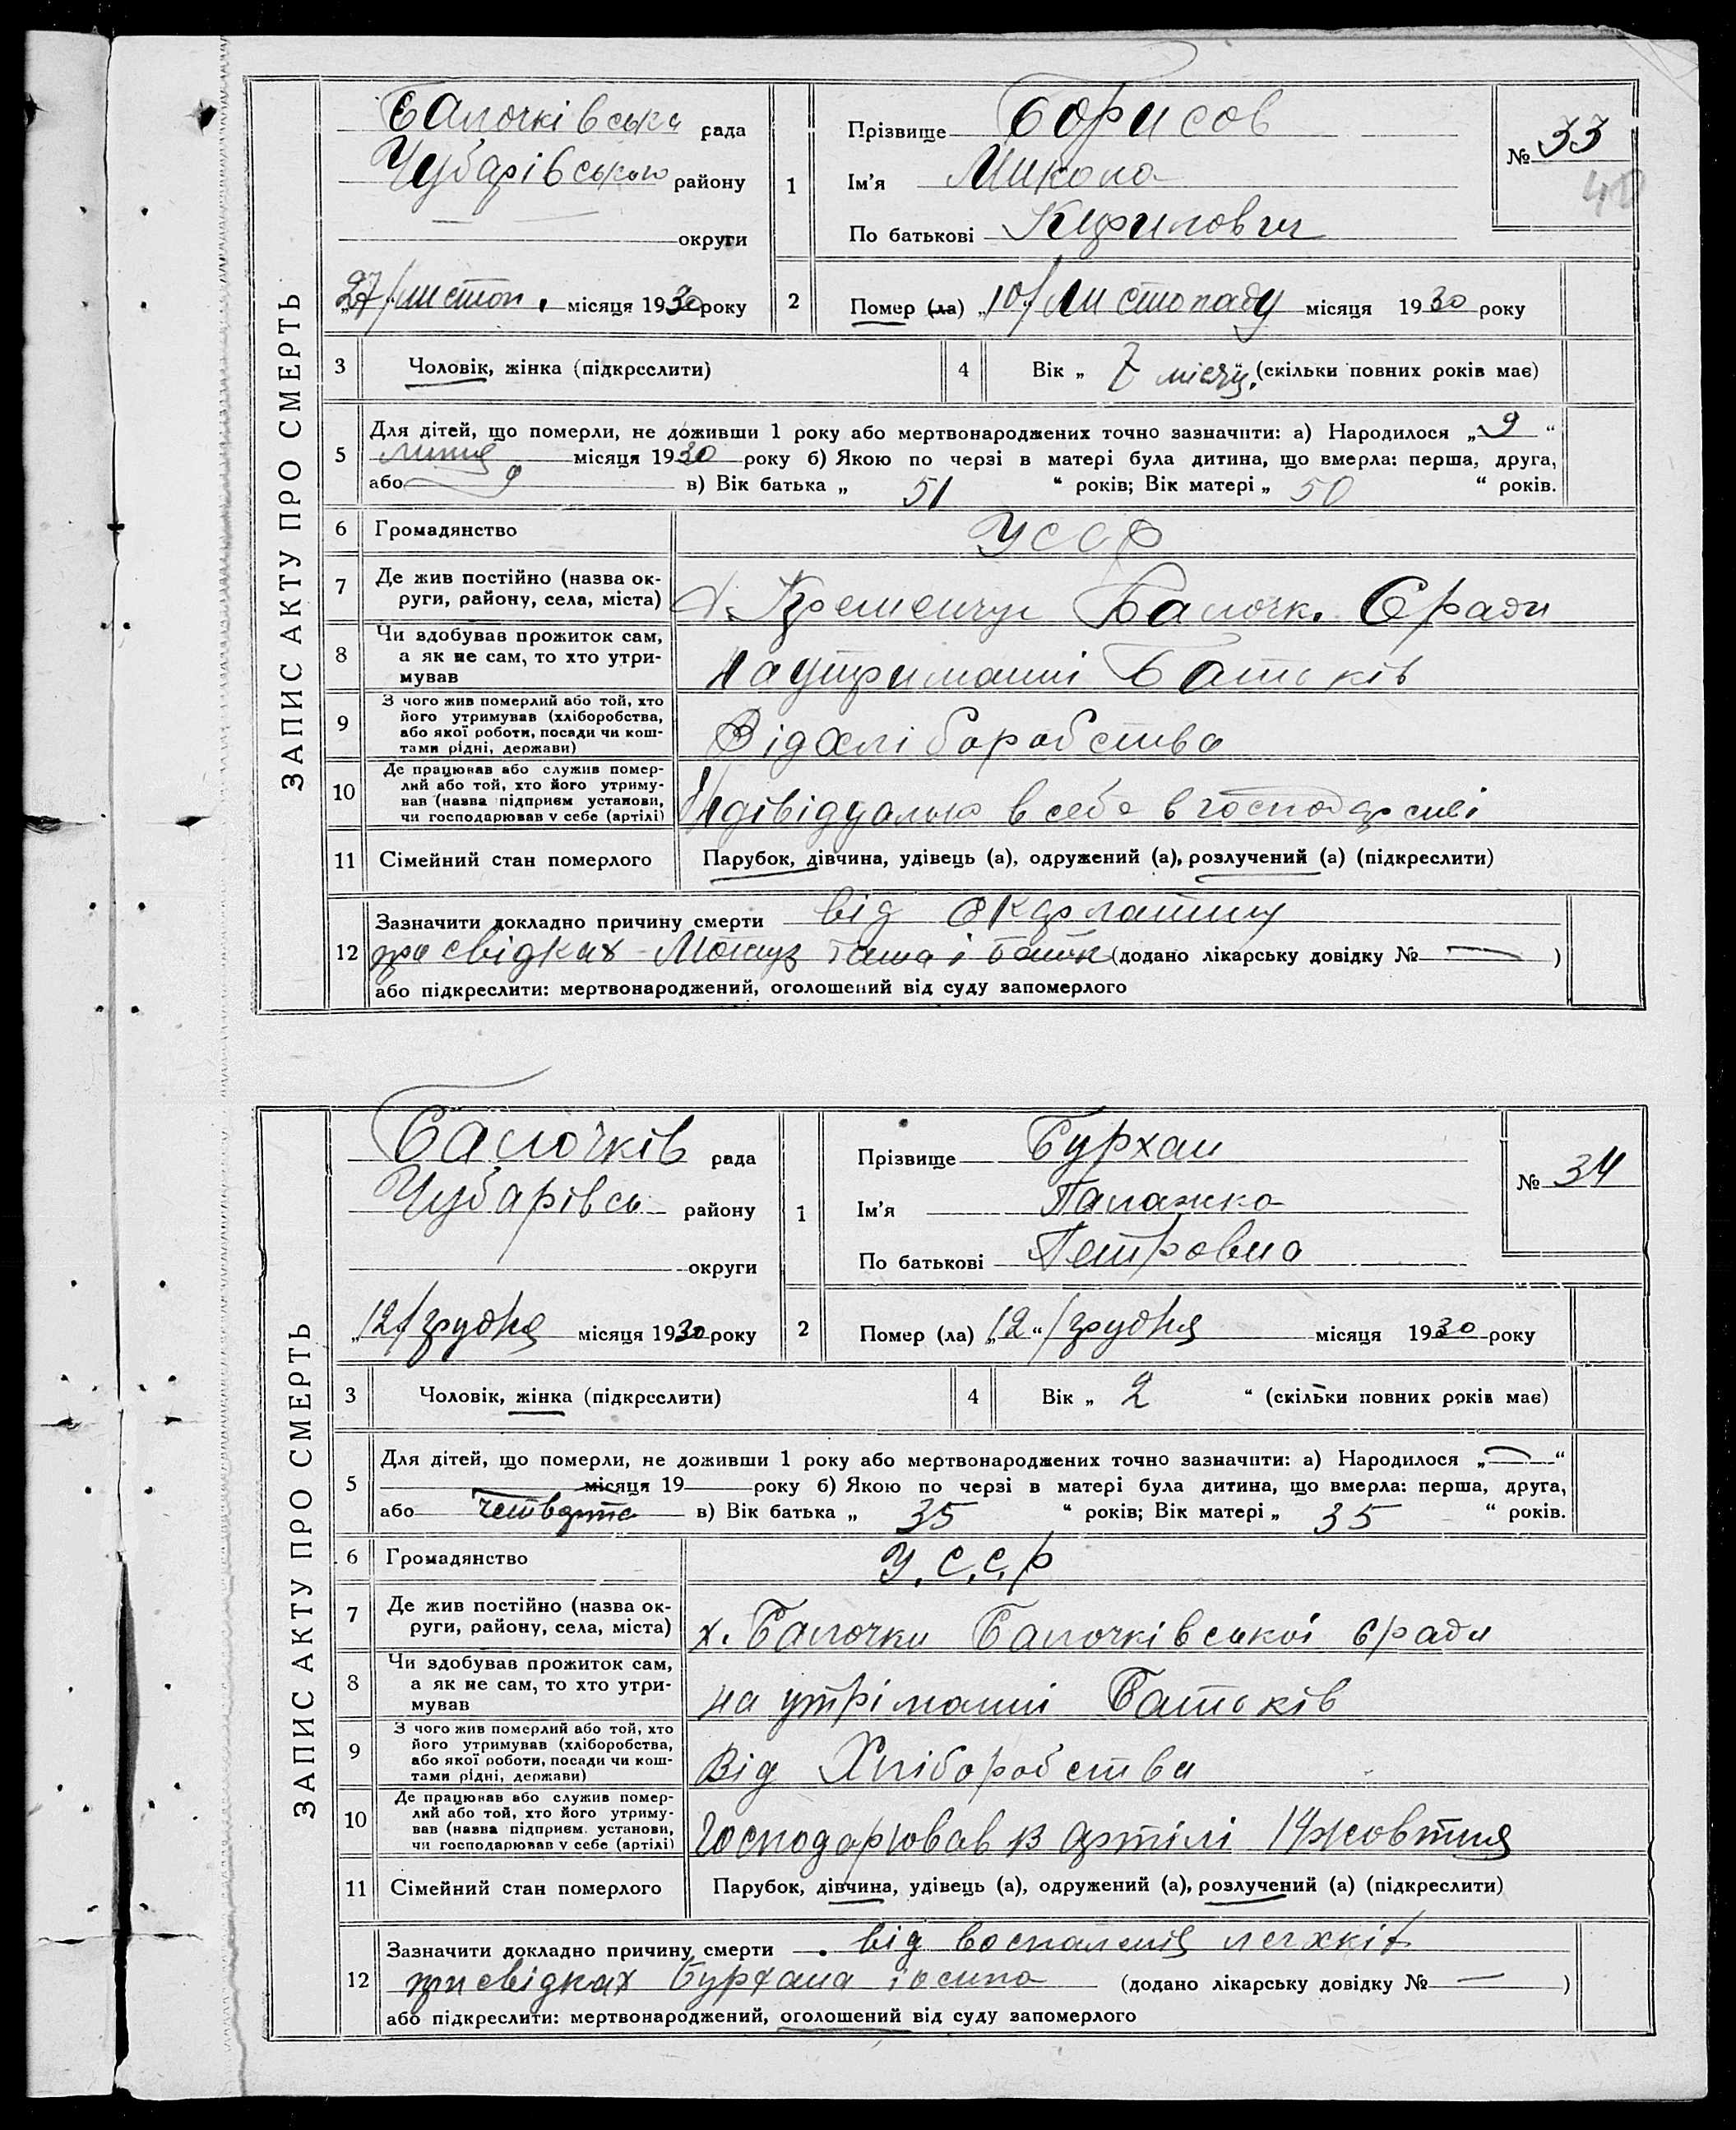 ЗАПИС АКТУ ПРО СМЕРТЬ
Балочківська рада
Чубарівського району
округи
„27/листоп. місяця 1930 року
1 Прізвище Борисов
Ім’я Микола
По батькові Кирилович
№ 33
40
2 Помер (ла) „10/листопаду місяця 1930 року
3 Чоловік, жінка (підкреслити)
4 Вік „ 7 місяц. (скільки повних років має)
5 Для дітей, що померли, не доживши 1 року або мертвонароджених точно зазначити: а) Народилося „9“
Липня місяця 1930 року б) Якою по черзі в матері була дитина, що вмерла: перша, друга,
або 9 в) Вік батька „ 51 “ років; Вік матері „ 50 “ років.
6 Громадянство УССР
7 Де жив постійно (назва ок-
руги, району, села, міста) х. Кременчук Балочк. С/ради
8 Чи здобував прожиток сам,
а як не сам, то хто утри-
мував На утриманні Батьків
9 З чого жив померлий або той, хто
його утримував (хліборобства,
або якої роботи, посади чи кош-
тами рідні, держави) Від хліборобства
10 Де працював або служив помер-
лий або той, хто його утриму-
вав (назва підприєм установи,
чи господарював у себе (артілі) Індівідуально в себе в господарстві
11 Сімейний стан померлого Парубок, дівчина, удівець (а), одружений (а), розлучений (а) (підкреслити)
12 Зазначити докладно причину смерти від скарлатини
при свідках і батьк (додано лікарську довідку № — )
або підкреслити: мертвонароджений, оголошений від суду запомерлого
ЗАПИС АКТУ ПРО СМЕРТЬ
Балочків рада
Чубарівсь району
округи
„12/грудня місяця 1930 року
1 Прізвище Бурхан
Ім’я Палажка
По батькові Петровна
№ 34
2 Помер (ла) „12“/грудня місяця 1930 року
3 Чоловік, жінка (підкреслити)
4 Вік „ 2 “ (скільки повних років має)
5 Для дітей, що померли, не доживши 1 року або мертвонароджених точно зазначити: а) Народилося „—“
місяця 19 року б) Якою по черзі в матері була дитина, що вмерла: перша, друга,
або четверта в) Вік батька „ 35 “ років; Вік матері „ 35 “ років.
6 Громадянство У.С.С.Р
7 Де жив постійно (назва ок-
руги, району, села, міста) х. Балочки Балочківської с/ради
8 Чи здобував прожиток сам,
а як не сам, то хто утри-
мував на утріманні Батьків
9 З чого жив померлий або той, хто
його утримував (хліборобства,
або якої роботи, посади чи кош-
тами рідні, держави) Від Хліборобства
10 Де працював або служив помер-
лий або той, хто його утриму-
вав (назва підприєм. установи,
чи господарював у себе (артілі) Господарював в артілі 14 жовтня
11 Сімейний стан померлого Парубок, дівчина, удівець (а), одружений (а), розлучений (а) (підкреслити)
12 Зазначити докладно причину смерти від воспаленія легхкіх
при свідках Бурхана іосипа (додано лікарську довідку № — )
або підкреслити: мертвонароджений, оголошений від суду запомерлого